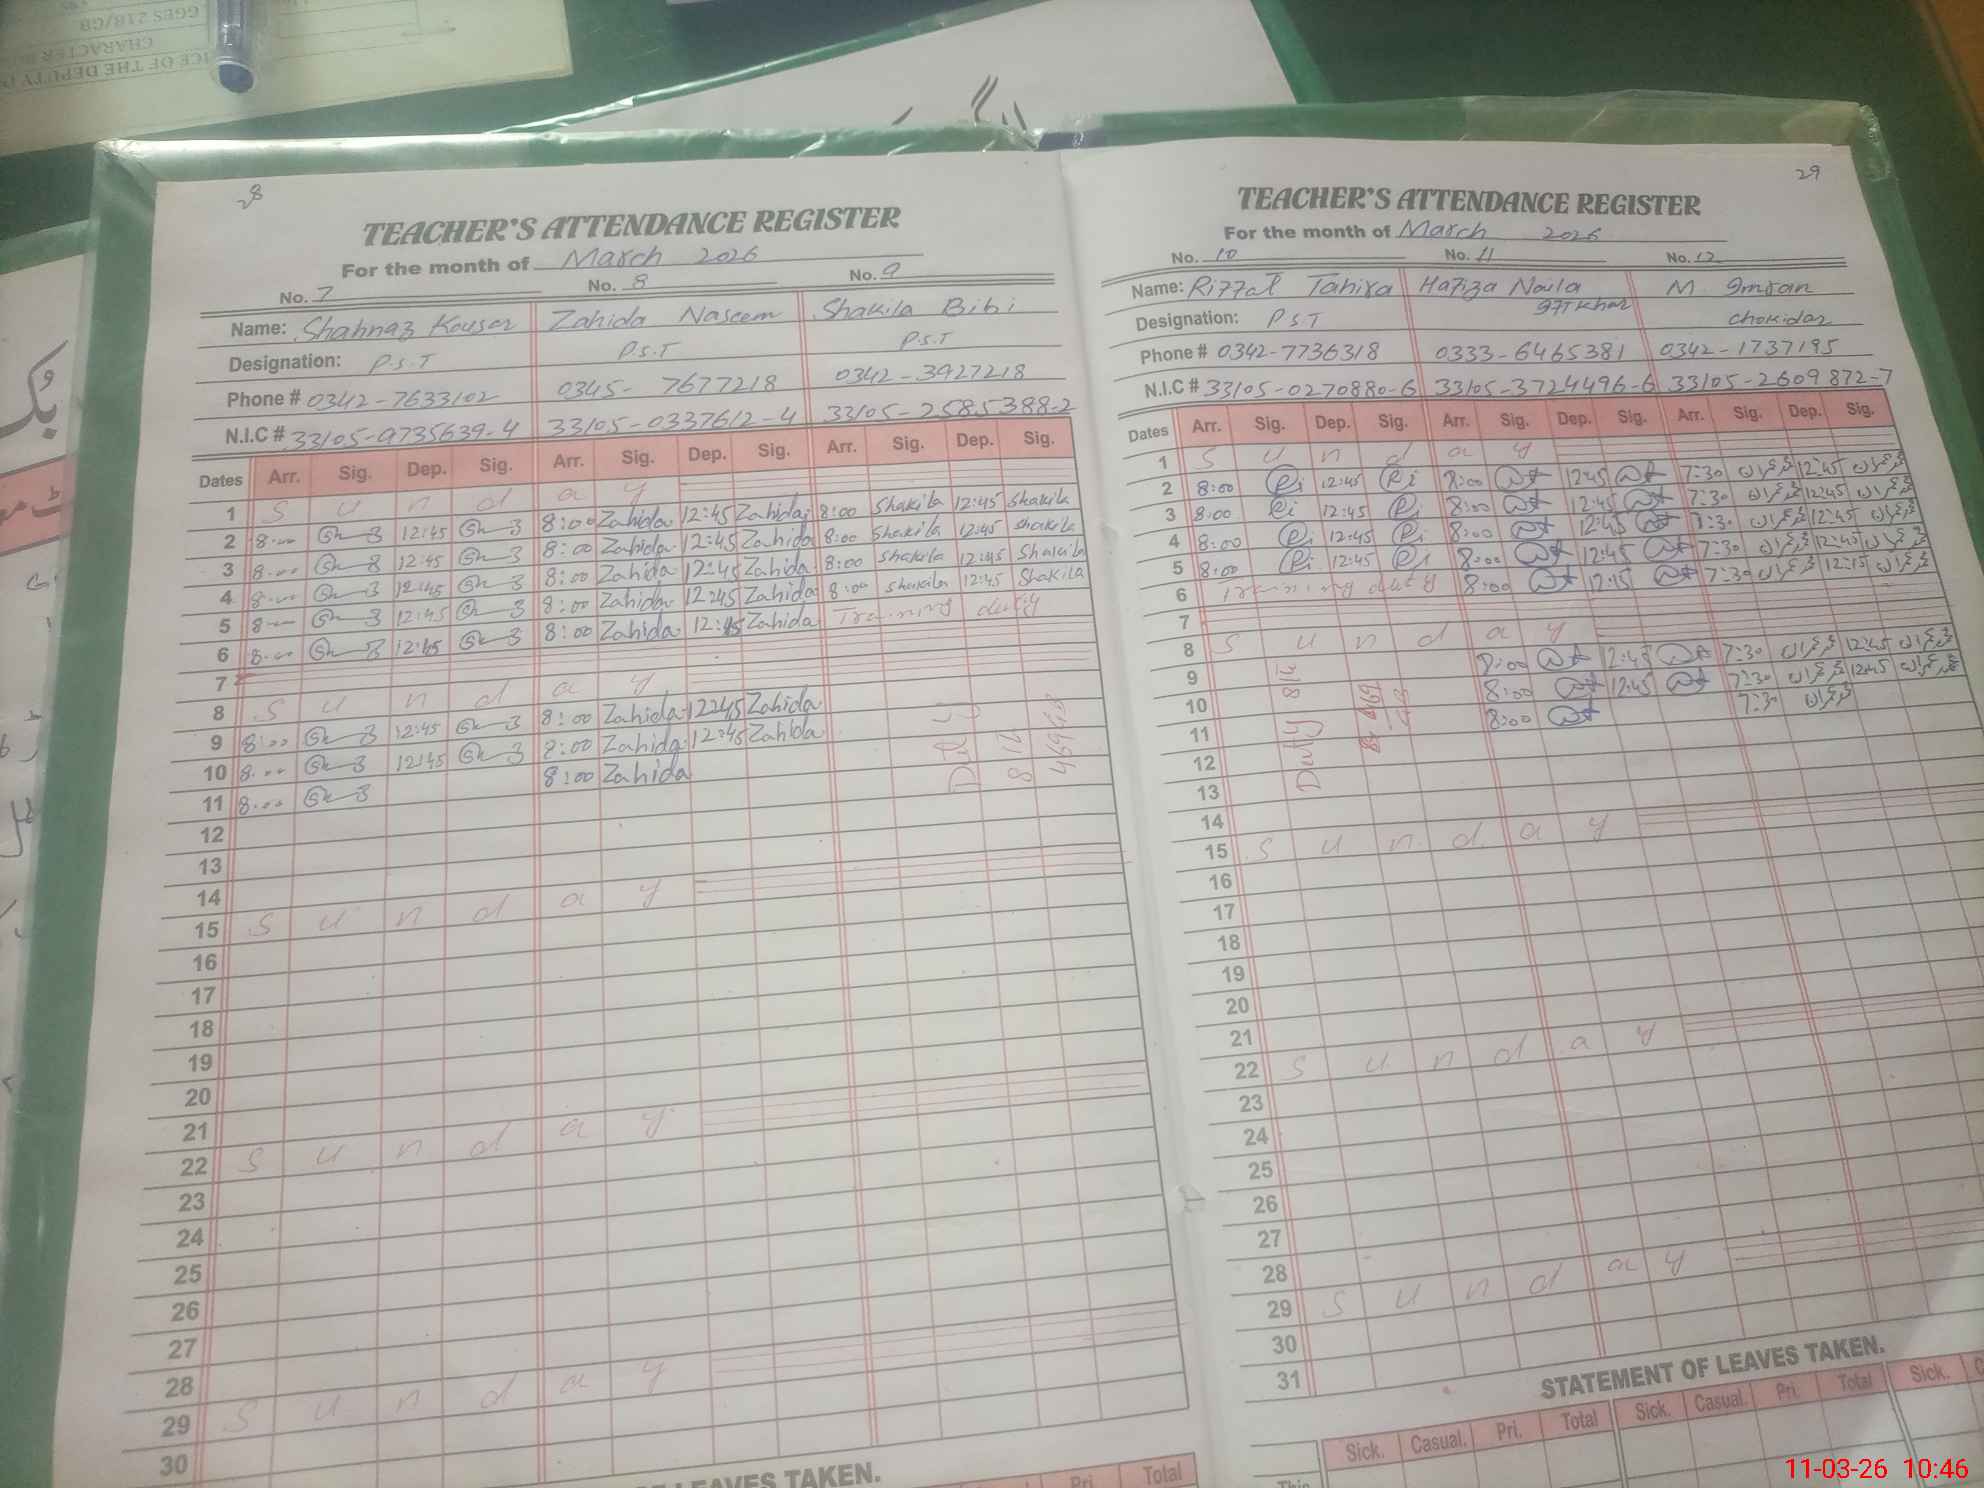 GGES 218/GB
CHARACTER
ICE OF THE DEPUTY
28
TEACHER'S ATTENDANCE REGISTER
For the month of March 2026
No. 7 No. 8 No. 9
Name: Shahnaz Kousar Zahida Naseem Shakila Bibi
Designation: P.S.T P.S.T P.S.T
Phone # 0342-7633102 0345-7677218 0342-3927218
N.I.C # 33105-9735639-4 33105-0337612-4 33105-2585388-2
Dates Arr. Sig. Dep. Sig. Arr. Sig. Dep. Sig. Arr. Sig. Dep. Sig.
1 S u n d a y
2 8:00 12:45 8:00 Zahida 12:45 Zahida 8:00 Shakila 12:45 Shakila
3 8:00 12:45 8:00 Zahida 12:45 Zahida 8:00 Shakila 12:45 Shakila
4 8:00 12:45 8:00 Zahida 12:45 Zahida 8:00 Shakila 12:45 Shakila
5 8:00 12:45 8:00 Zahida 12:45 Zahida 8:00 Shakila 12:45 Shakila
6 8:00 12:45 8:00 Zahida 12:45 Zahida Training duty
7
8 S u n d a y
9 8:00 12:45 8:00 Zahida 12:45 Zahida
10 8:00 12:45 8:00 Zahida 12:45 Zahida
11 8:00 8:00 Zahida
Duty
12
13
14
15 S u n d a y
16
17
18
19
20
21
22 S u n d a y
23
24
25
26
27
28
29 S u n d a y
30
OF LEAVES TAKEN.
Pri. Total
29
TEACHER'S ATTENDANCE REGISTER
For the month of March 2026
No. 10 No. 11 No. 12
Name: Riffat Tahira Hafiza Naila Iftikhar M Imran
Designation: P.S.T Chokidar
Phone # 0342-7736318 0333-6465381 0342-1737195
N.I.C # 33105-0270880-6 33105-3724496-6 33105-2609872-7
Dates Arr. Sig. Dep. Sig. Arr. Sig. Dep. Sig. Arr. Sig. Dep. Sig.
1 S u n d a y
2 8:00 12:45 8:00 12:45 7:30 12:45
3 8:00 12:45 8:00 12:45 7:30 12:45
4 8:00 12:45 8:00 12:45 7:30 12:45
5 8:00 12:45 8:00 12:45 7:30 12:45
6 Training duty 8:00 12:45 7:30 12:45
7
8 S u n d a y
9 8:00 12:45 7:30 12:45
10 8:00 12:45 7:30 12:45
11 8:00 7:30
Duty
12
13
14
15 S u n d a y
16
17
18
19
20
21
22 S u n d a y
23
24
25
26
27
28
29 S u n d a y
30
31
STATEMENT OF LEAVES TAKEN.
Sick. Casual. Pri. Total Sick. Casual. Pri. Total Sick.
This
11-03-26 10:46